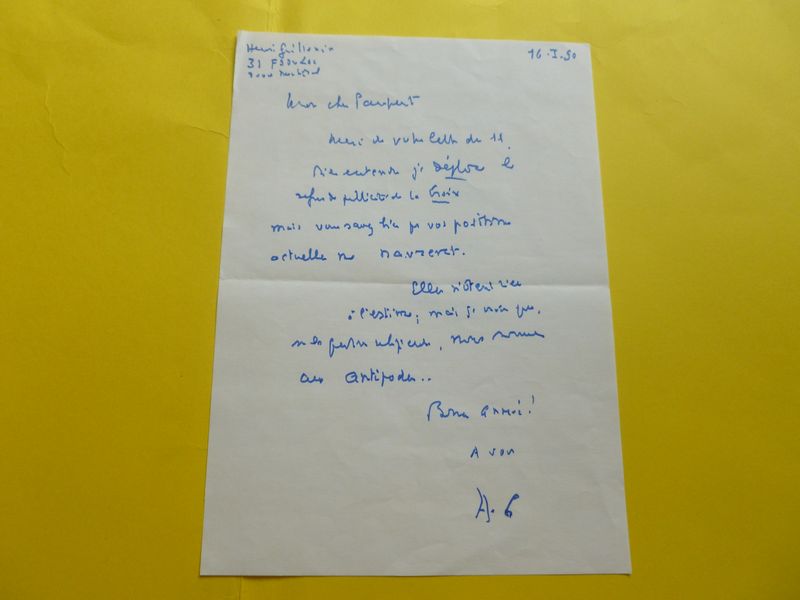 Henri Guillemin
31 Fbg de
2000 Neuchâtel
16.I.90
Mon cher Paupert
Merci de votre lettre du 11.
Bien entendu je déplore le
refus de publicité de la Croix
mais vous savez bien que vos positions
actuelles me navrent.
Elles n'ôtent rien
à l'estime, mais je crois que,
nous sommes
aux antipodes..
Bonne année!
A vous
H. G